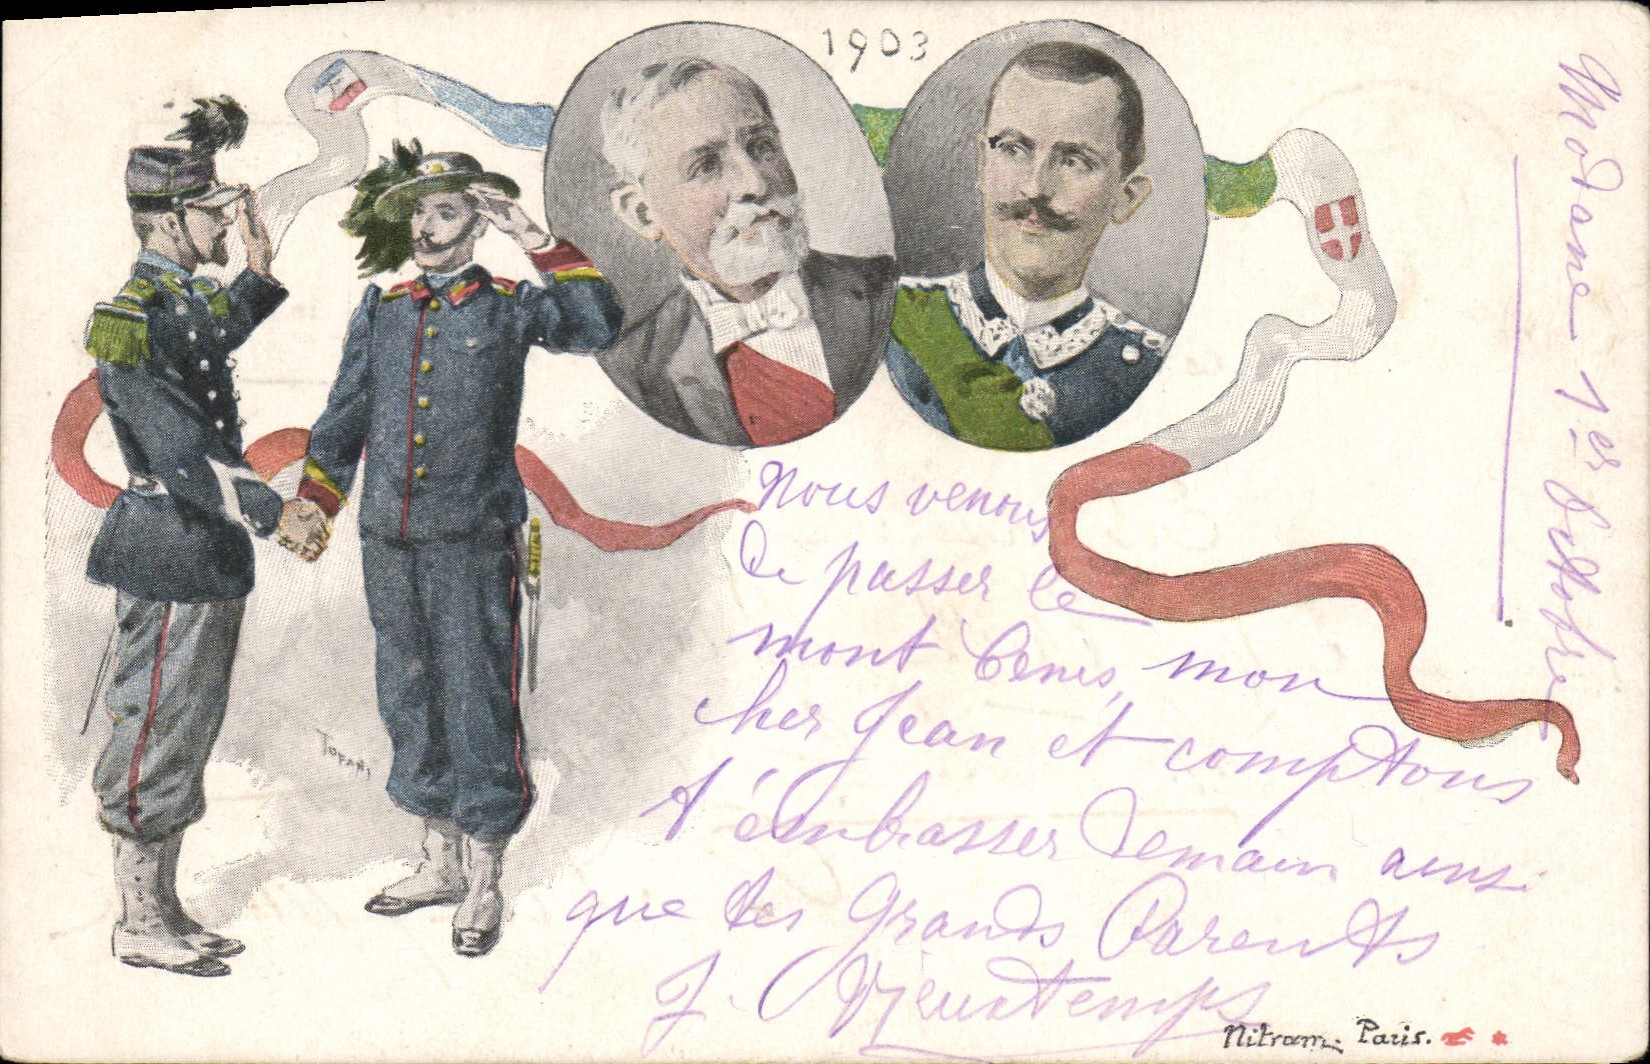 1903
Nous venons
de passer le
mont Cenis, mon
cher Jean et comptons
t'embrasser demain ainsi
que tes Grands Parents
J. Vieuxtemps
Modane 1er Octobre
Nitram. Paris.